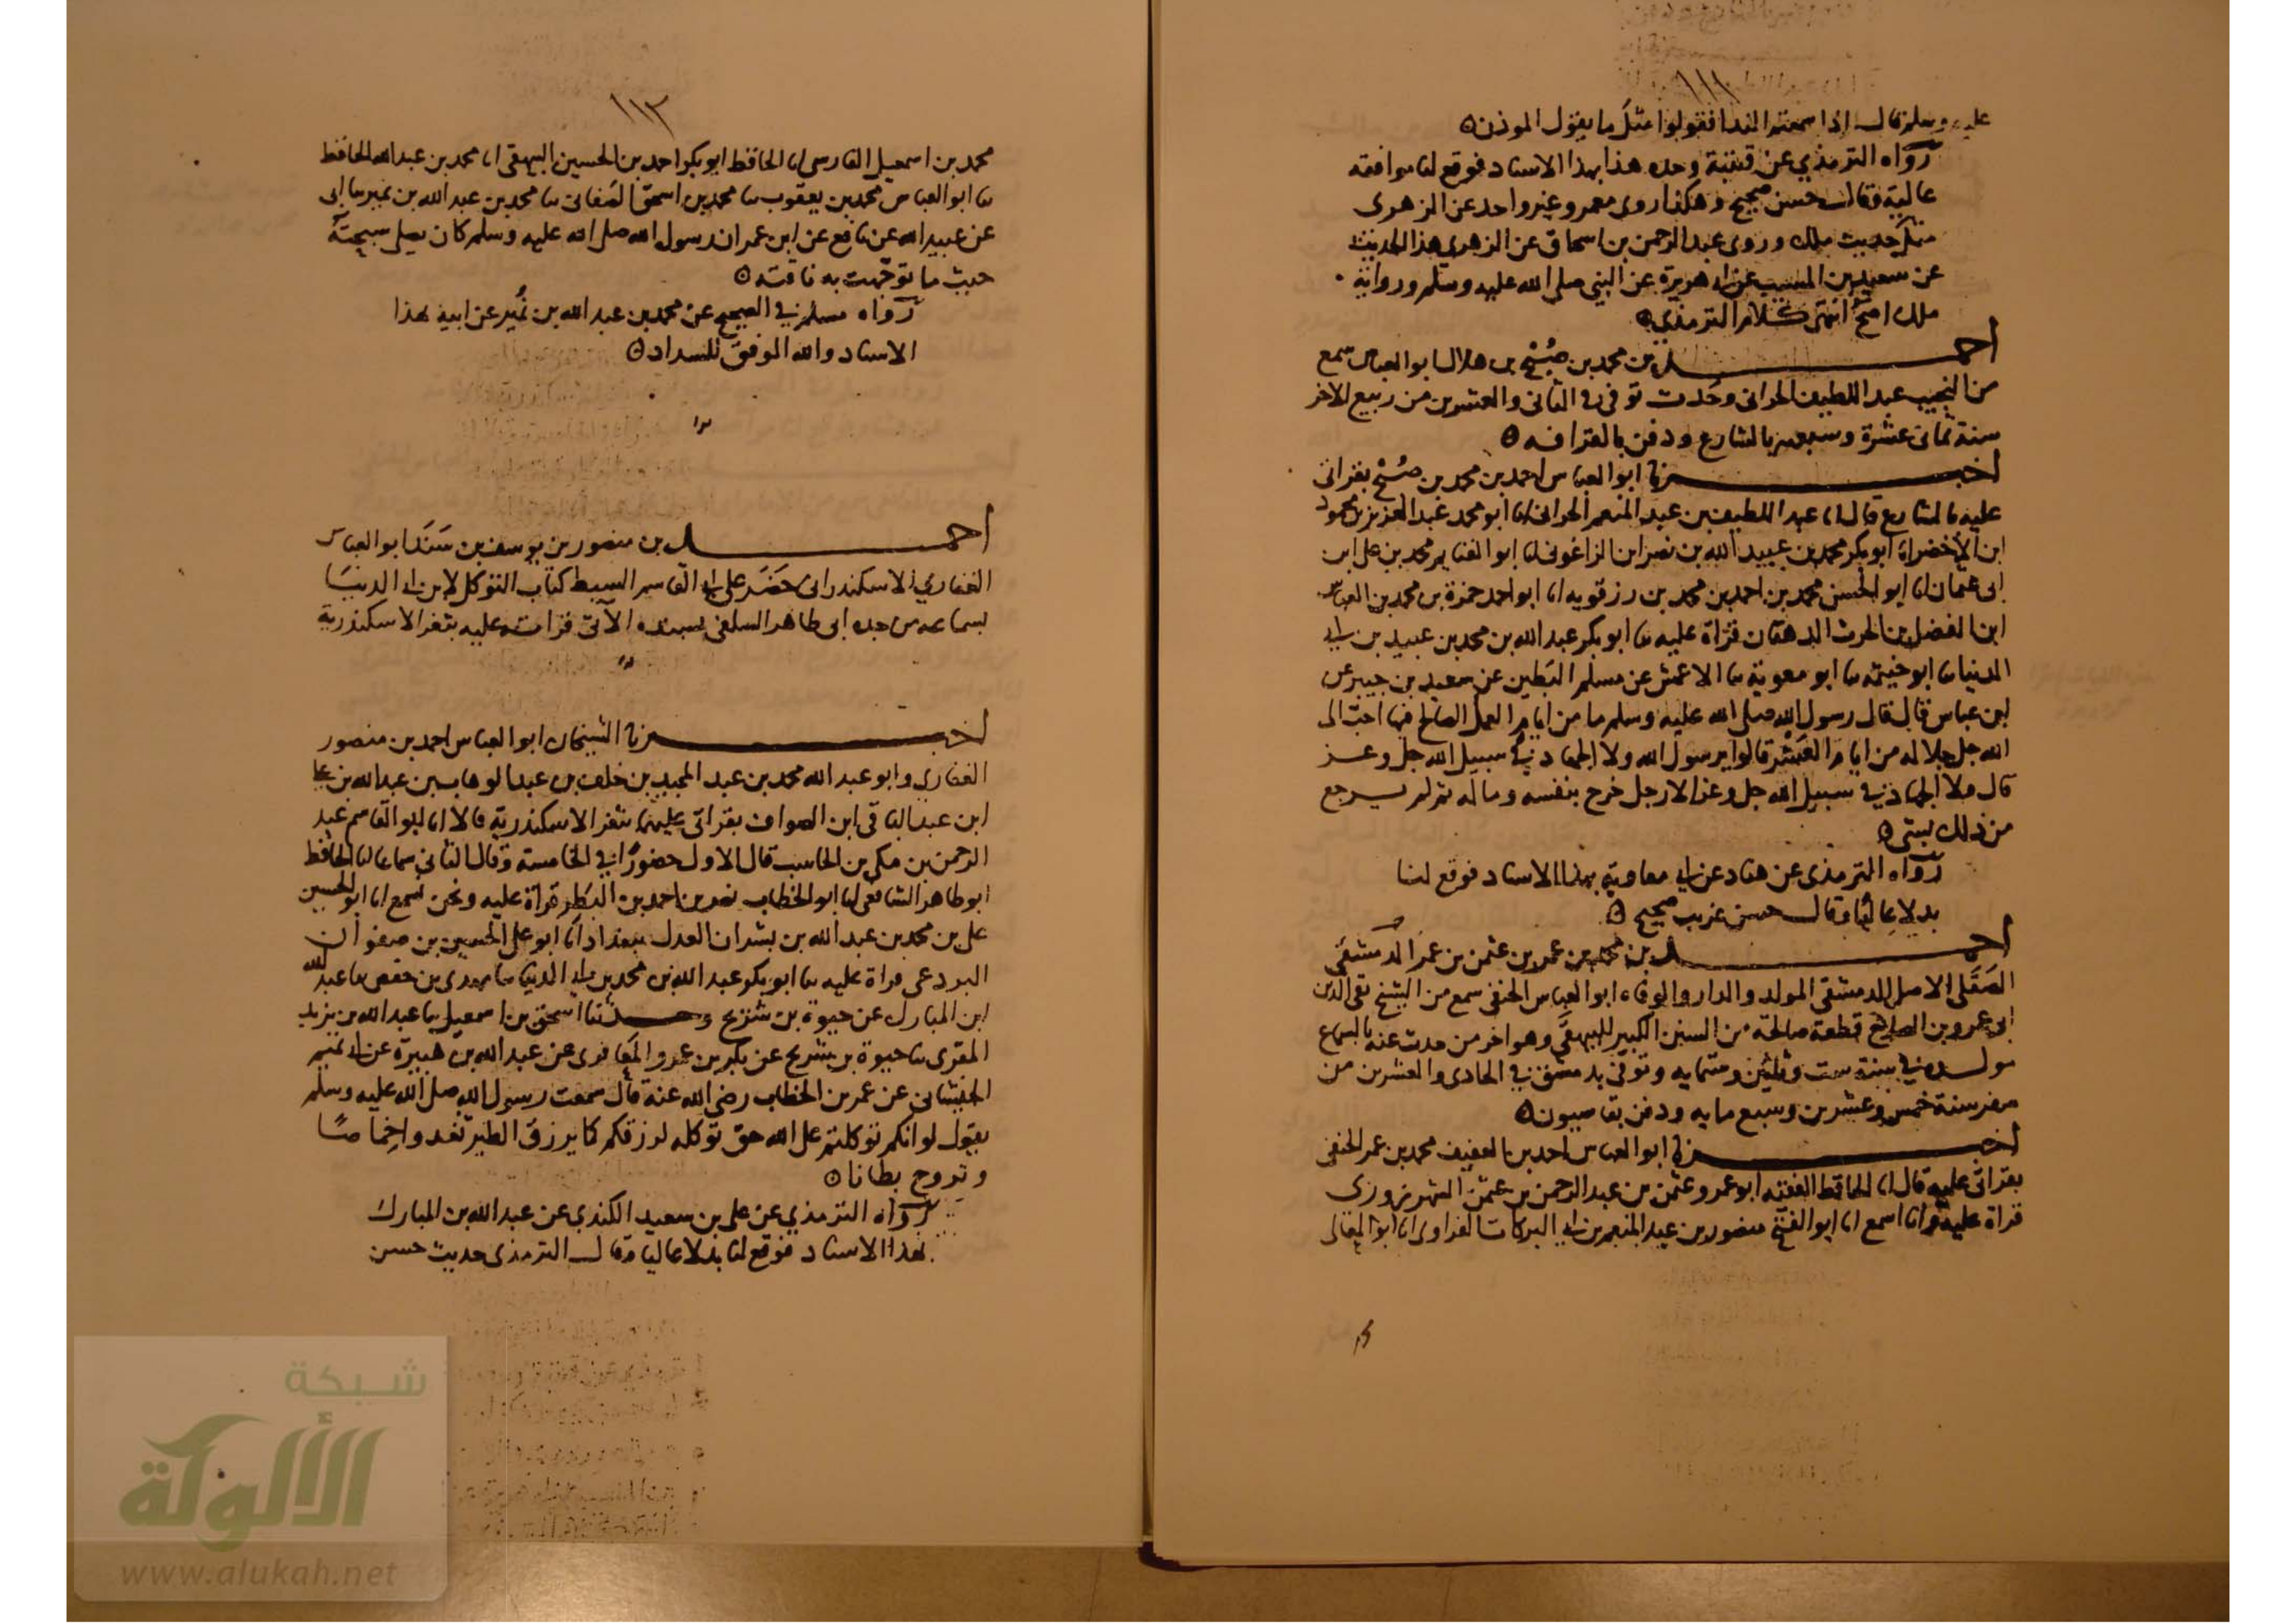 ١١١
عليه وسلم قال اذا سمعتم الندا فقولوا مثل ما يقول الموذن
رواه الترمذي عن قتيبة وحده هذا بهذا الاسناد فوقع لنا موافقه
عالية وقال حسن صحيح وهكذا روى معمر وغير واحد عن الزهرى
مثل حديث ملك وروى عبد الرحمن بن اسحاق عن الزهرى هذا الحديث
عن سعيد بن المسيب عن ابي هريرة عن النبي صلى الله عليه وسلم ورواية
ملك اصح انتهى كلام الترمذي
احمد بن محمد بن صُبْح بن هلال ابو العباس سمع
من النجيب عبد اللطيف الحرانى وحدث توفى في الثانى والعشرين من ربيع الاخر
سنة ثمانى عشرة وسبعمية بالشارع ودفن بالقرافه
اخبرنا ابو العباس احمد بن محمد بن صُبْح بقراتى
عليه بالشارع قال انا عبد اللطيف بن عبد المنعم الحرانى انا ابو محمد عبد العزيز بن محمود
ابن الأخضر انا ابو بكر محمد بن عبيد الله بن نصر ابن الزاغونى انا ابو الغنايم محمد بن على ابن
ابى عثمان انا ابو الحسن محمد بن احمد بن محمد بن رزقويه انا ابو احمد حمزة بن محمد بن العباس
ابن الفضل بن الحرث الدهقان قراة عليه ثنا ابو بكر عبد الله بن محمد بن عبيد بن ابي
الدنيا ثنا ابو خيثمه ثنا ابو معوية ثنا الاعمش عن مسلم البَطين عن سعيد بن جبير عن
ابن عباس قال قال رسول الله صلى الله عليه وسلم ما من ايام العمل الصالح فيها احب الى
الله جل جلاله من ايام العَشْر قالوا يرسول الله ولا الجهاد في سبيل الله جل وعز
قال ولا الجهاد في سبيل الله جل وعز الا رجل خرج بنفسه وماله ثم لم يرجع
من ذلك بشى
رواه الترمذى عن هناد عن ابي معاوية بهذا الاسناد فوقع لنا
بدلا عاليًا وقال حسن غريب صحيح
احمد بن محمد بن عمر بن عثمن بن عمر الدمشقى
الصَقَلى الاصل الدمشقى المولد والدار والوفاه ابو العباس الحنفى سمع من الشيخ تقى الدين
ابى عمرو بن الصلاح قطعة صالحة من السنن الكبير للبيهقى وهو اخر من حدث عنه بالسماع
مولده في سنة ست وثلثين وستمايه وتوفى بدمشق في الحادى والعشرين من
صفر سنة خمس وعشرين وسبع مايه ودفن بقاسيون
اخبرنا ابو العباس احمد بن العفيف محمد بن عمر الحنفى
بقراتى عليه قال انا الحافظ الفقيه ابو عمرو عثمن بن عبد الرحمن بن عثمن الشهرزورى
قراة عليه وانا اسمع انا ابو الفتح منصور بن عبد المنعم بن ابي البركات الفراوى انا ابو المعالى
١١٢
محمد بن اسمعيل الفارسى انا الحافظ ابو بكر احمد بن الحسين البيهقى انا محمد بن عبد الله الحافظ
ثنا ابو العباس محمد بن يعقوب ثنا محمد بن اسحق الصَغانى ثنا محمد بن عبد الله بن نمير ثنا ابى
عن عبيد الله عن نافع عن ابن عمر ان رسول الله صلى الله عليه وسلم كان يصلى سبحته
حيث ما توجّهت به ناقته
رواه مسلم في الصحيح عن محمد بن عبد الله بن نُمير عن ابيه بهذا
الاسناد والله الموفق للسداد
احمد بن منصور بن يوسف بن سَنَد ابو العباس
الغفاري الاسكندرانى حَضَر على ابي القاسم السبط كتاب التوكل لابن ابي الدنيَا
بسماعه من جده ابى طاهر السلفى بسنده الآتى قرات عليه بثغر الاسكندرية
اخبرنا الشيخان ابو العباس احمد بن منصور
الغفاري وابو عبد الله محمد بن عبد المجيد بن خلف بن عبد الوهاب بن عبد الله بن على
ابن عبد الباقى ابن الصواف بقراتى عليهما بثغر الاسكندرية قالا انا ابو القاسم عبد
الرحمن بن مكى بن الحاسب قال الاول حضورًا في الخامسة وقال الثانى سماعا انا الحافظ
ابو طاهر الشافعى انا ابو الخطاب نصر بن احمد بن البَطِر قراة عليه ونحن نسمع انا ابو الحسين
على بن محمد بن عبد الله بن بشران العدل ببغداد انا ابو على الحسين بن صفوان
البردعى قراة عليه ثنا ابو بكر عبد الله بن محمد بن ابي الدنيا ثنا مهدى بن حفص ثنا عبد الله
ابن المبارك عن حيوة بن شريح وحدثنا اسحق بن اسمعيل ثنا عبد الله بن يزيد
المقرى ثنا حيوة بن شريح عن بكر بن عمرو المعَافرى عن عبد الله بن هبيرة عن ابي تميم
الجيشانى عن عمر بن الخطاب رضى الله عنه قال سمعت رسول الله صلى الله عليه وسلم
يقول لو انكم توكلتم على الله حق توكله لرزقكم كما يرزق الطير تغدوا خِماصًا
وتروح بطانا
رواه الترمذي عن على بن سعيد الكندي عن عبد الله بن المبارك
بهذا الاسناد فوقع لنا بدلا عاليا وقال الترمذى حديث حسن
شبكة
الألوكة
www.alukah.net